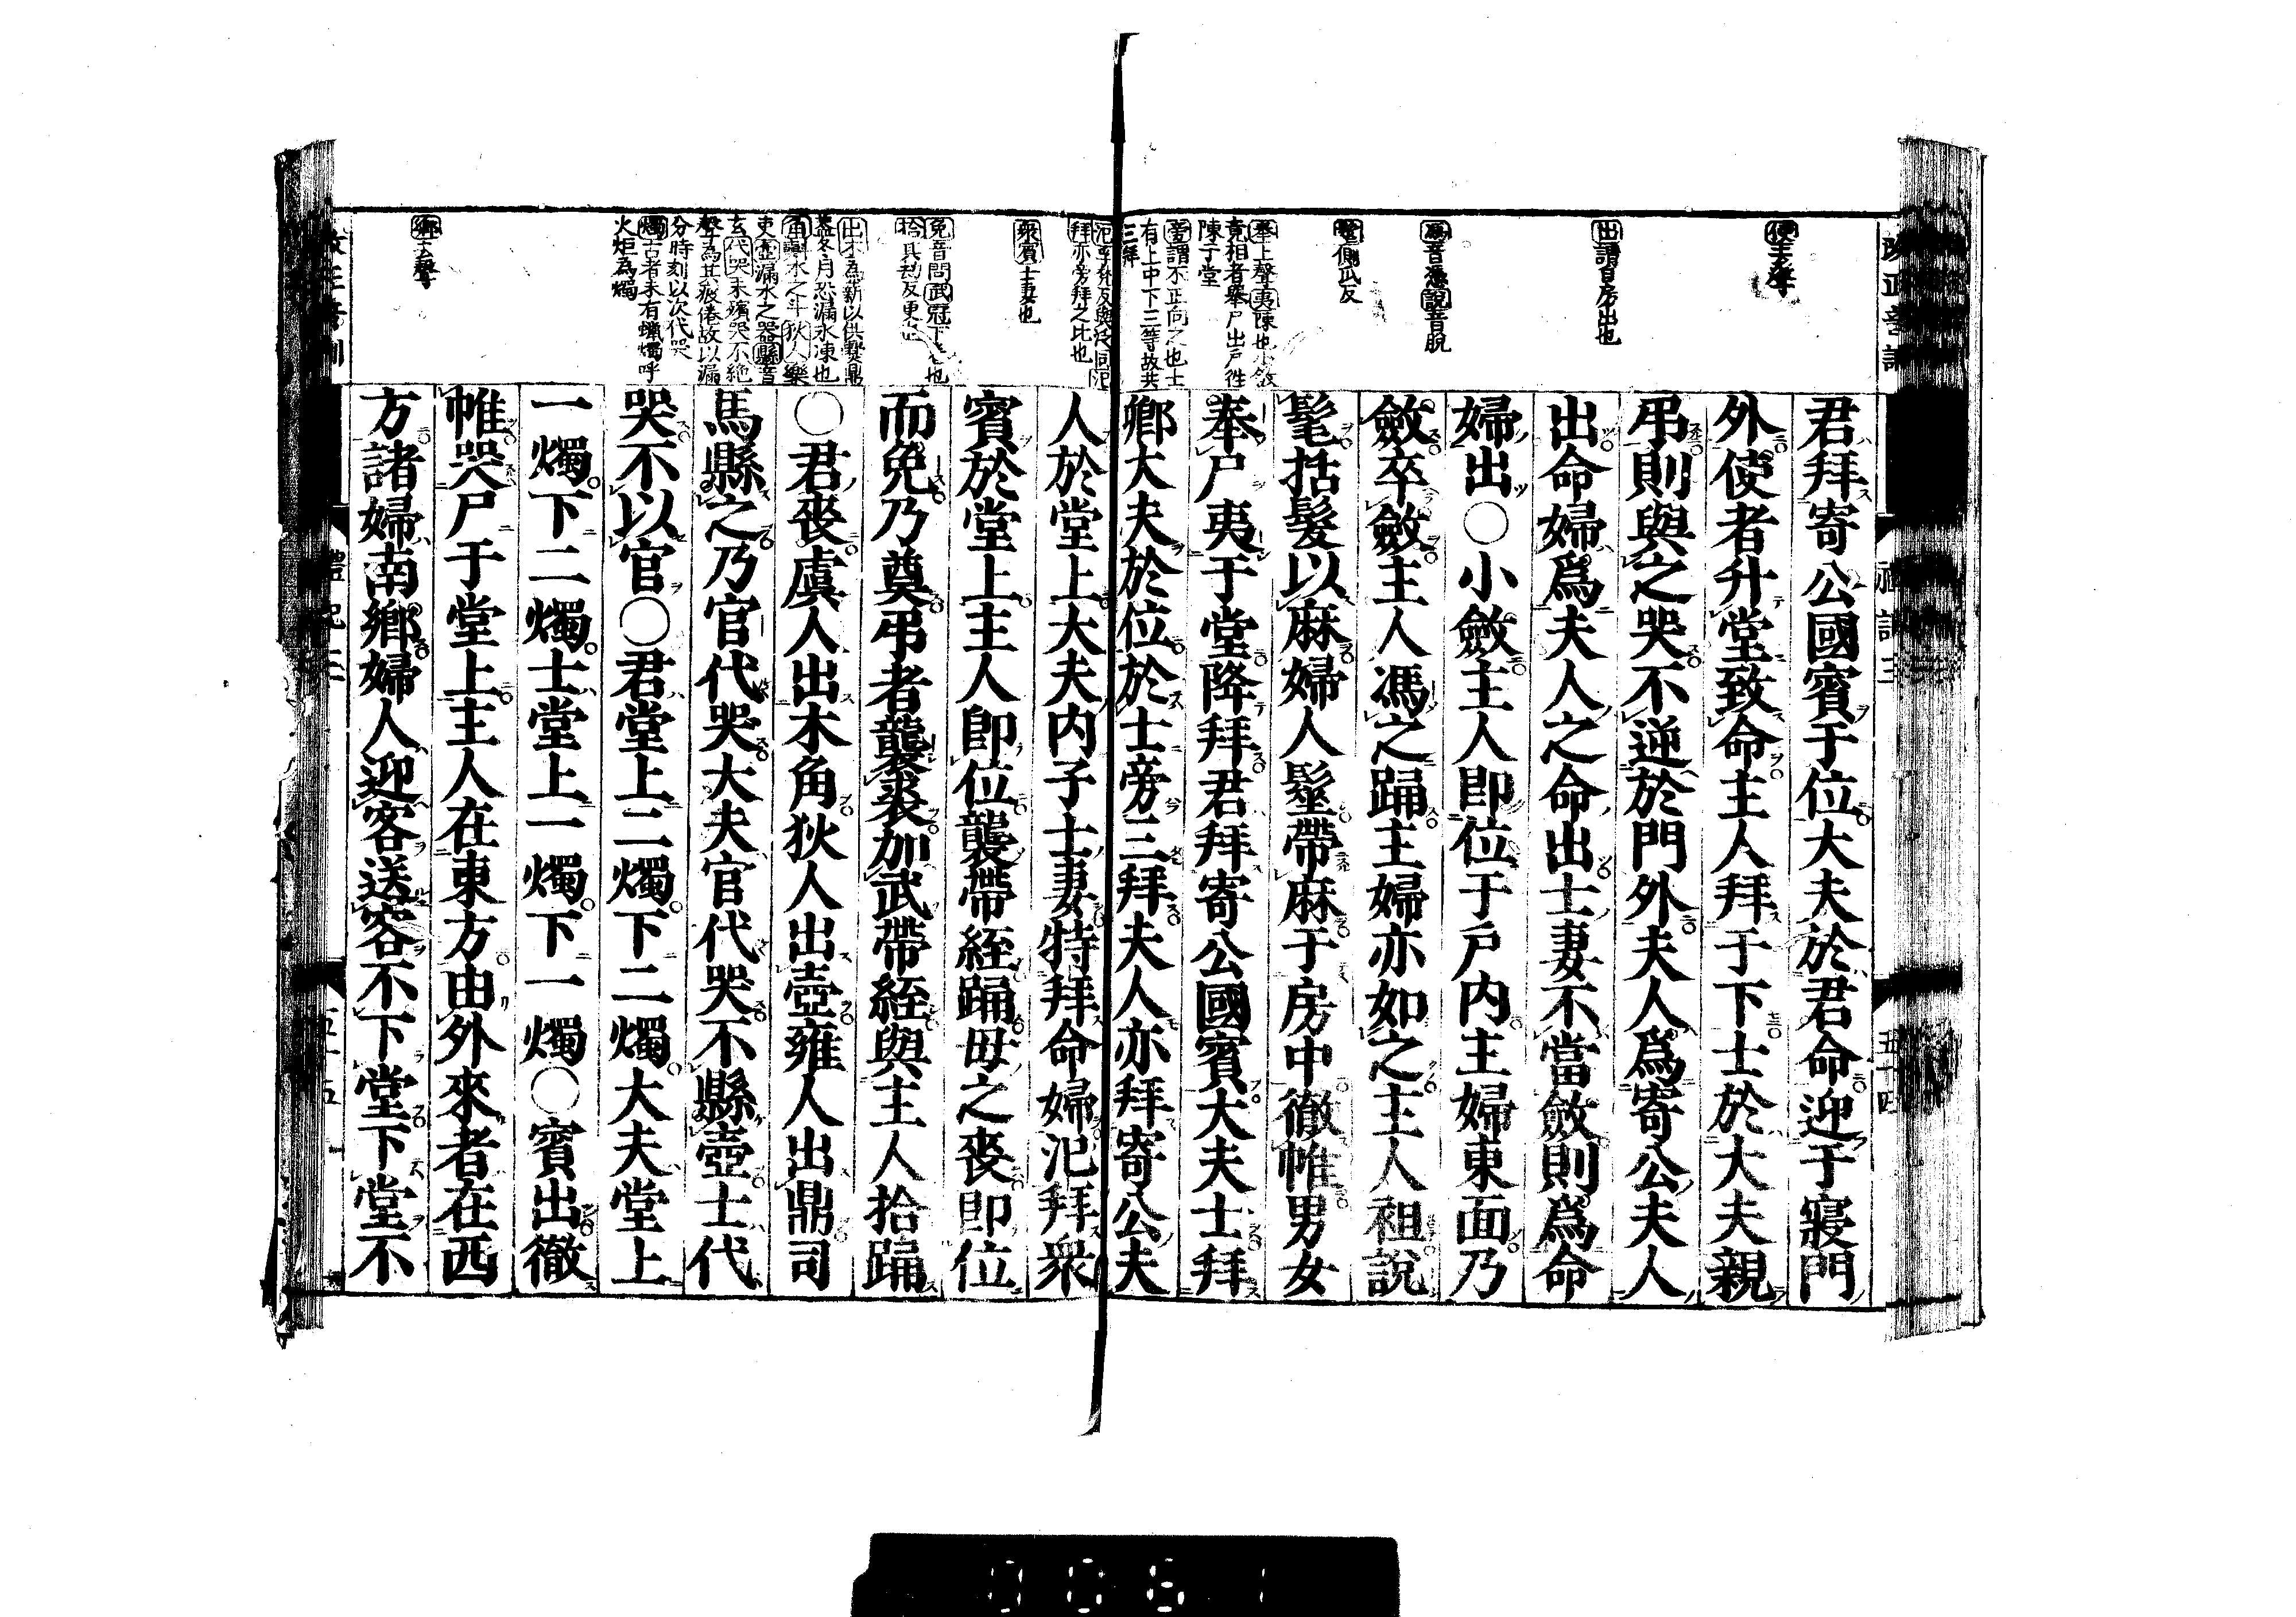 君拜寄公國賓于位大夫於君命迎于寢門
外使者升堂致命主人拜于下士於大夫親
弔則與之哭不逆於門外夫人爲寄公夫人
出命婦爲夫人之命出士妻不當斂則爲命
婦出〇小斂主人卽位于戶內主婦東面乃
斂卒斂主人馮之踊主婦亦如之主人袒說
髦括髮以麻婦人髽帶麻于房中徹帷男女
奉尸夷于堂降拜君拜寄公國賓大夫士拜
鄉大夫於位於士旁三拜夫人亦拜寄公夫
人於堂上大夫內子士妻特拜命婦氾拜衆
賓於堂上主人卽位襲帶絰踊母之喪卽位
而免乃奠弔者襲裘加武帶絰與主人拾踊
〇君喪虞人出木角狄人出壺雍人出鼎司
馬縣之乃官代哭大夫官代哭不縣壺士代
哭不以官〇君堂上二燭下二燭大夫堂上
一燭下二燭士堂上一燭下一燭〇賓出徹
帷哭尸于堂上主人在東方由外來者在西
方諸婦南鄉婦人迎客送客不下堂下堂不
使去聲
出謂自房出也
馮音憑說音脫
髽側瓜反
奉上聲夷陳也小斂
竟相者舉尸出戶徃
陳于堂
旁謂不正向之也士
有上中下三等故共
三拜
拜亦旁拜之比也
衆賓士妻也
免音問武冠下卷也
拾其劫反更也
出木為薪以供爨鼎
蓋冬月恐漏水凍也
角斟水之斗狄人樂
吏壺漏水之器縣音
玄代哭未殯哭不絶
聲為其疲倦故以漏
分時刻以次代哭
燭古者未有蠟燭呼
火炬為燭
鄉去聲
五十四